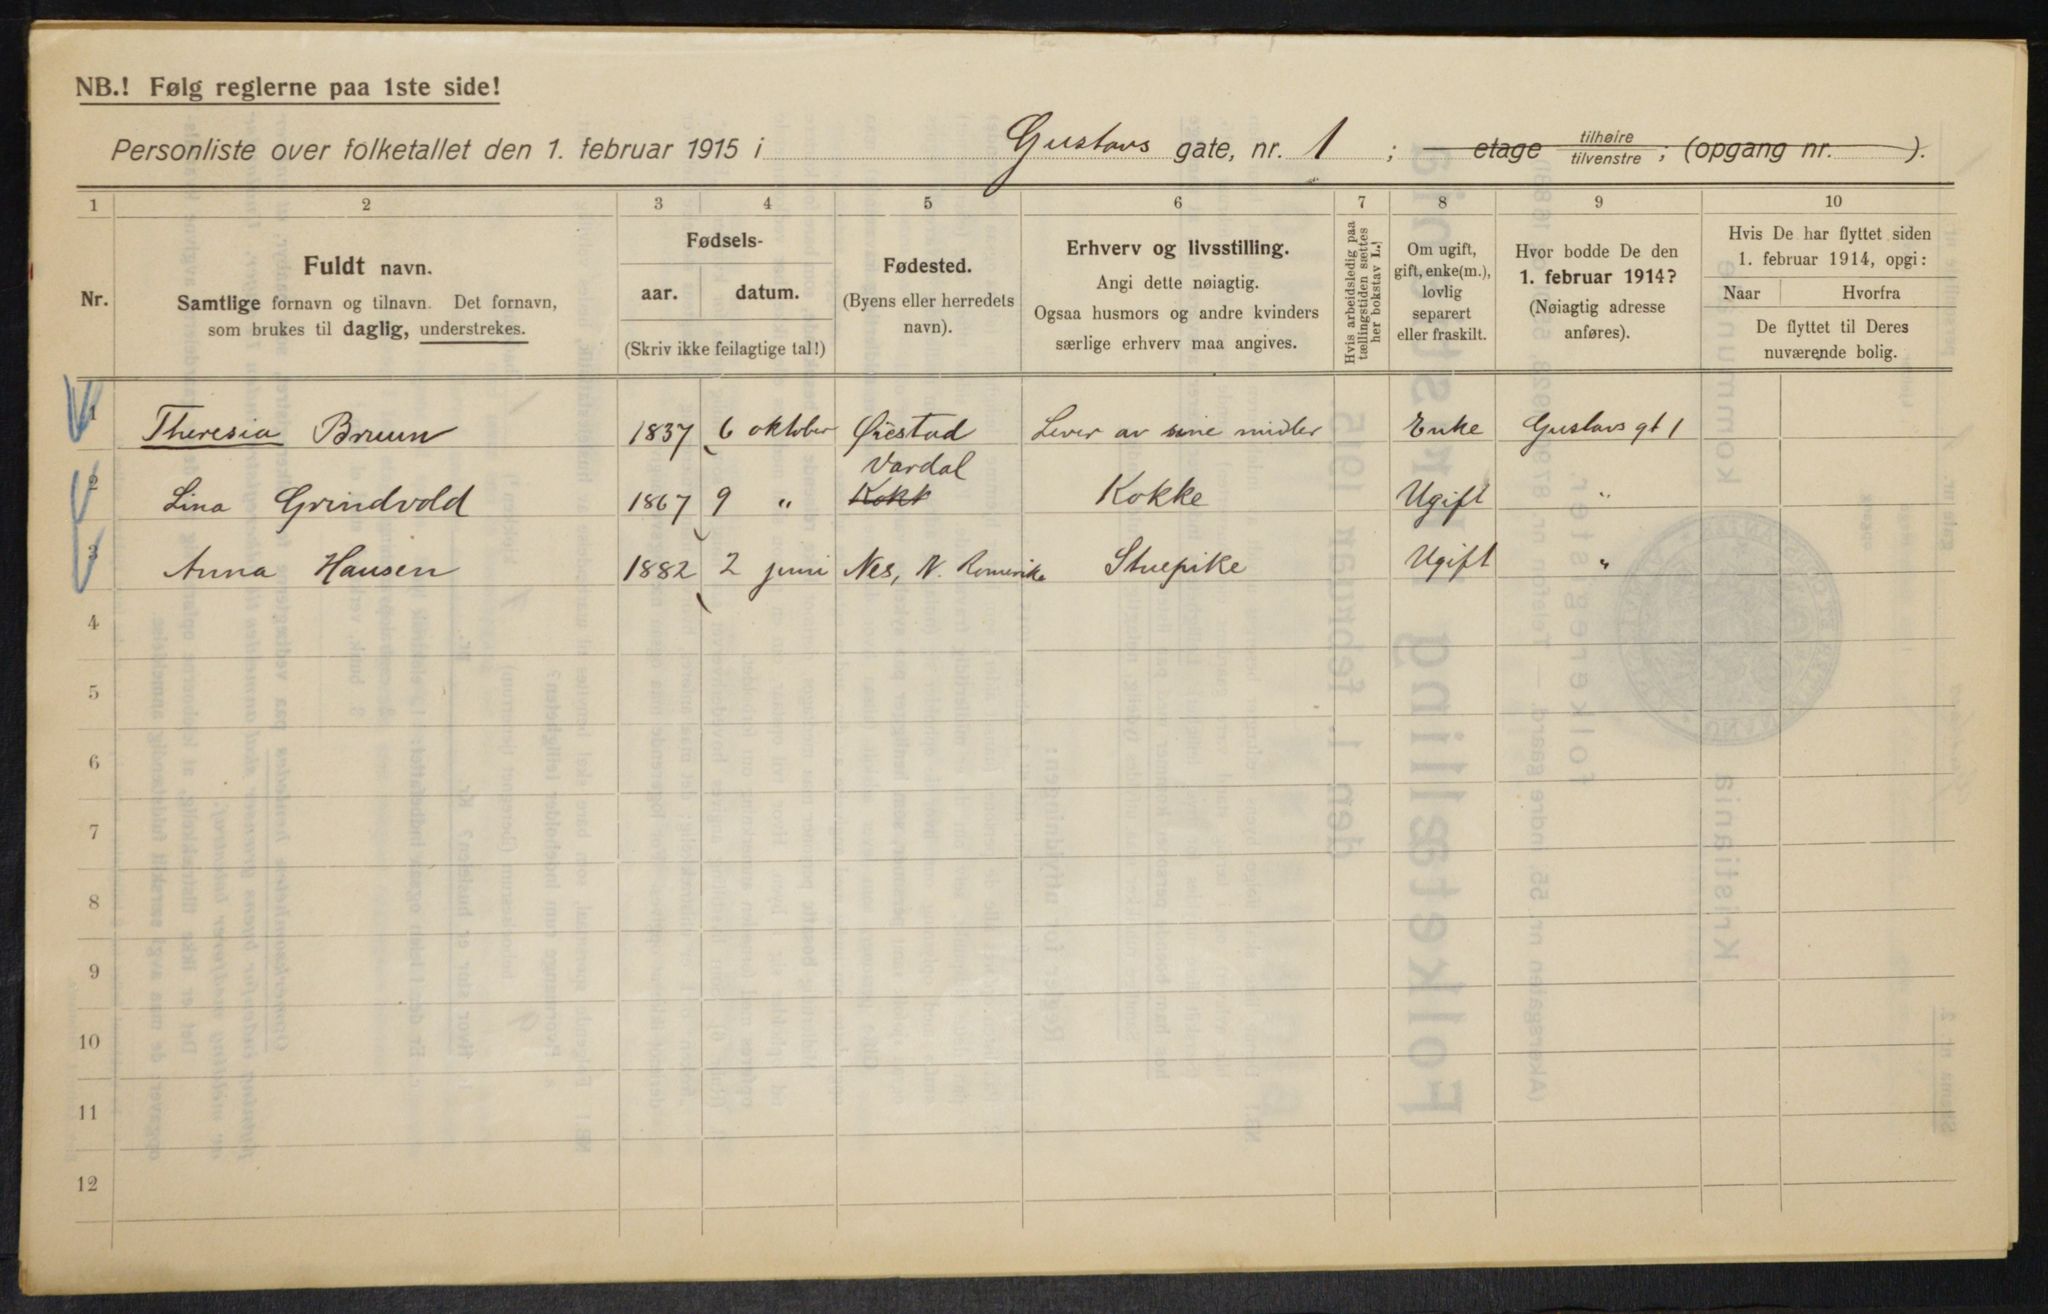 NB.! Følg reglerne paa 1ste side!
Personliste over folketallet den 1. februar 1915 i Gustavs gate, nr. 1 ; etage tilhøire tilvenstre ; (opgang nr. ).
1 2 3 4 5 6 7 8 9 10
Nr.
Fuldt navn.
Samtlige fornavn og tilnavn. Det fornavn,
som brukes til daglig, understrekes.
Fødsels-
aar. datum.
(Skriv ikke feilagtige tal!)
Fødested.
(Byens eller herredets
navn).
Erhverv og livsstilling.
Angi dette nøiagtig.
Ogsaa husmors og andre kvinders
særlige erhverv maa angives.
Hvis arbeidsledig paa
tællingstiden sættes
her bokstav L.!
Om ugift,
gift, enke(m.),
lovlig
separert
eller fraskilt.
Hvor bodde De den
1. februar 1914?
(Nøiagtig adresse
anføres).
Hvis De har flyttet siden
1. februar 1914, opgi:
Naar Hvorfra
De flyttet til Deres
nuværende bolig.
1 Theresia Bruun 1837 6 oktober Øiestad Lever av sine midler Enke Gustavs gt 1
Vardal
2 Lina Grindvold 1867 9 " Kokk Kokke Ugift "
3 Anna Hansen 1882 2 juni Nes, N. Romerike Stuepike Ugift "
4
5
6
7
8
9
10
11
12